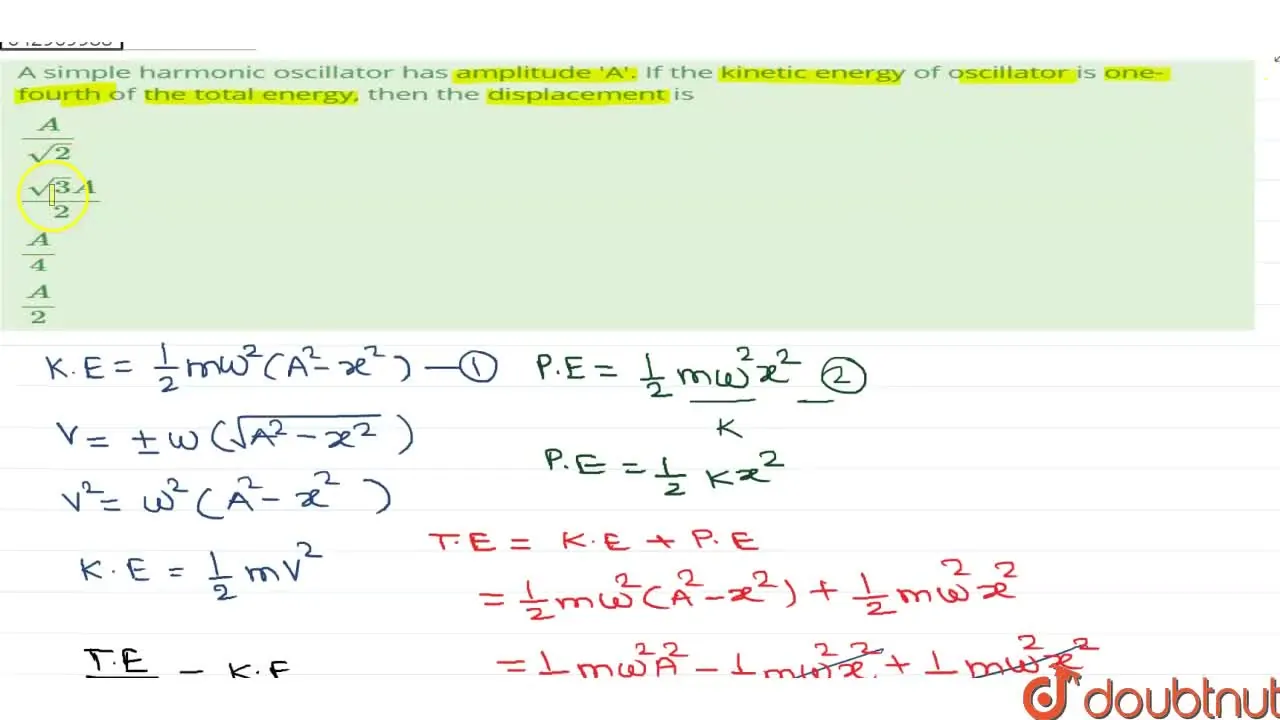 A simple harmonic oscillator has amplitude 'A'. If the kinetic energy of oscillator is one-
fourth of the total energy, then the displacement is
A/√2
√3A/2
A/4
A/2
K.E = 1/2 mω²(A²-x²) —①
P.E = 1/2 mω²x² ②
K
V = ± ω(√A²-x²)
P.E = 1/2 Kx²
V² = ω²(A²-x²)
T.E = K.E + P.E
K.E = 1/2 mV²
= 1/2 mω²(A²-x²) + 1/2 mω²x²
T.E
= 1 mω²A² - 1 mω²x² + 1 mω²x²
doubtnut